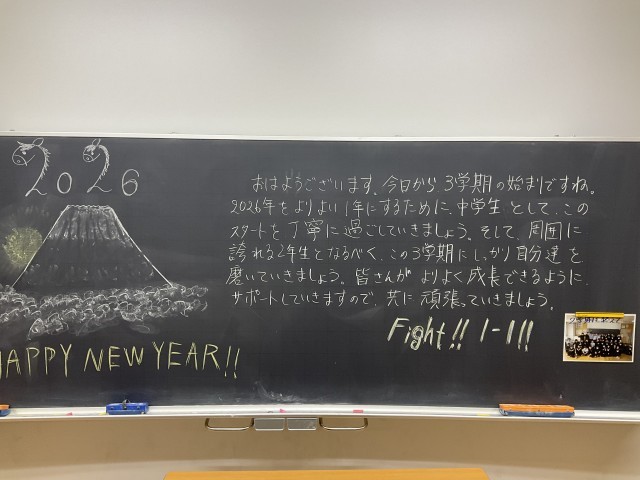 2026
おはようございます。今日から3学期の始まりですね。
2026年をよりよい1年にするために、中学生として、この
スタートを丁寧に過ごしていきましょう。そして、周囲に
誇れる2年生となるべく、この3学期にしっかり自分達を
磨いていきましょう。皆さんがよりよく成長できるように、
サポートしていきますので、共に頑張っていきましょう。
Fight!! 1-1!!
HAPPY NEW YEAR!!